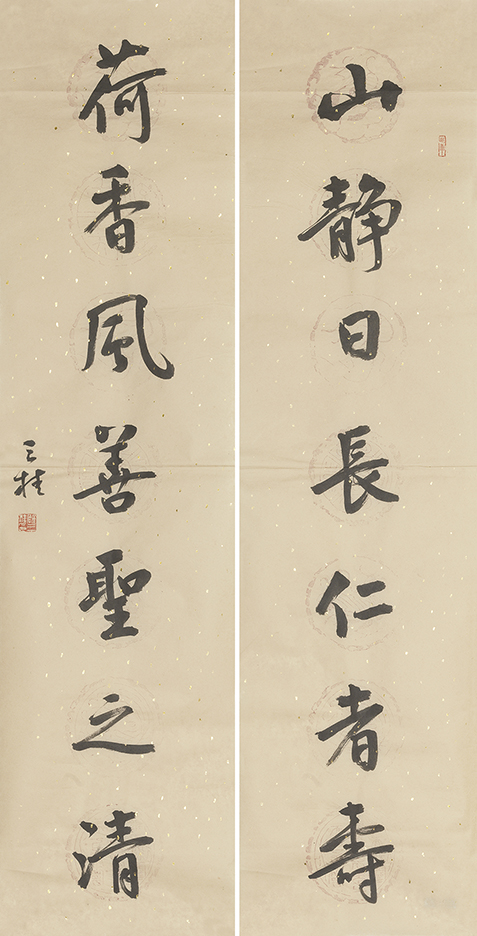 山静日長仁者壽
荷香風善聖之清